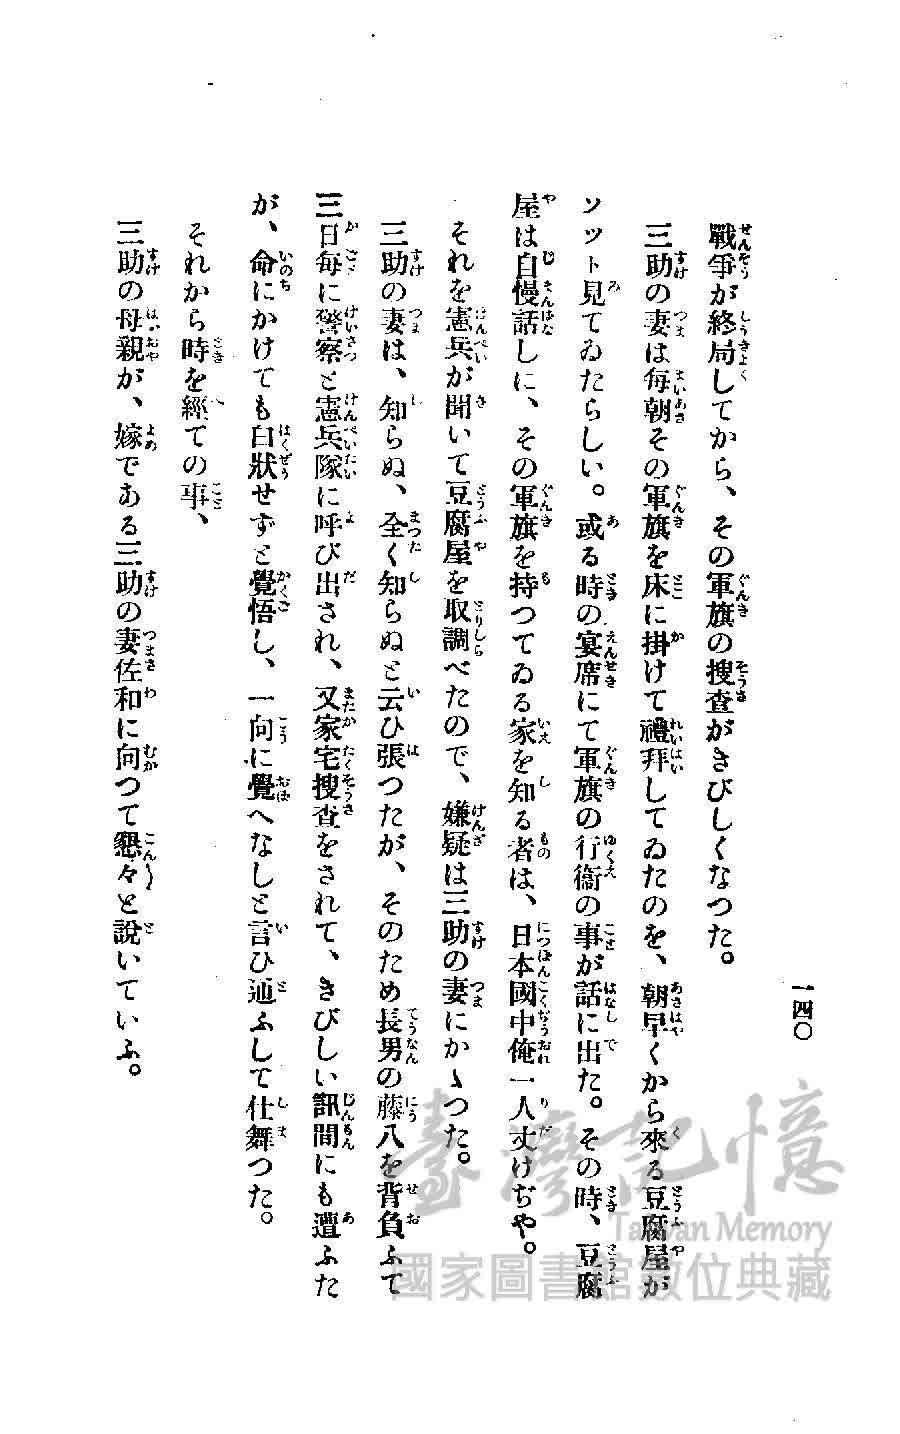 一四〇
戰爭が終局してから、その軍旗の搜査がきびしくなつた。
三助の妻は每朝その軍旗を床に掛けて禮拜してゐたのを、朝早くから來る豆腐屋が
ソット見てゐたらしい。或る時の宴席にて軍旗の行衞の事が話に出た。その時、豆腐
屋は自慢話しに、その軍旗を持つてゐる家を知る者は、日本國中俺一人丈けぢや。
それを憲兵が聞いて豆腐屋を取調べたので、嫌疑は三助の妻にかゝつた。
三助の妻は、知らぬ、全く知らぬと云ひ張つたが、そのため長男の藤八を背負ふて
三日每に警察と憲兵隊に呼び出され、又家宅搜査をされて、きびしい訊問にも遭ふた
が、命にかけても白狀せずと覺悟し、一向に覺へなしと言ひ通ふして仕舞つた。
それから時を經ての事、
三助の母親が、嫁である三助の妻佐和に向つて懇々と說いていふ。
臺灣記憶
Taiwan Memory
國家圖書館數位典藏